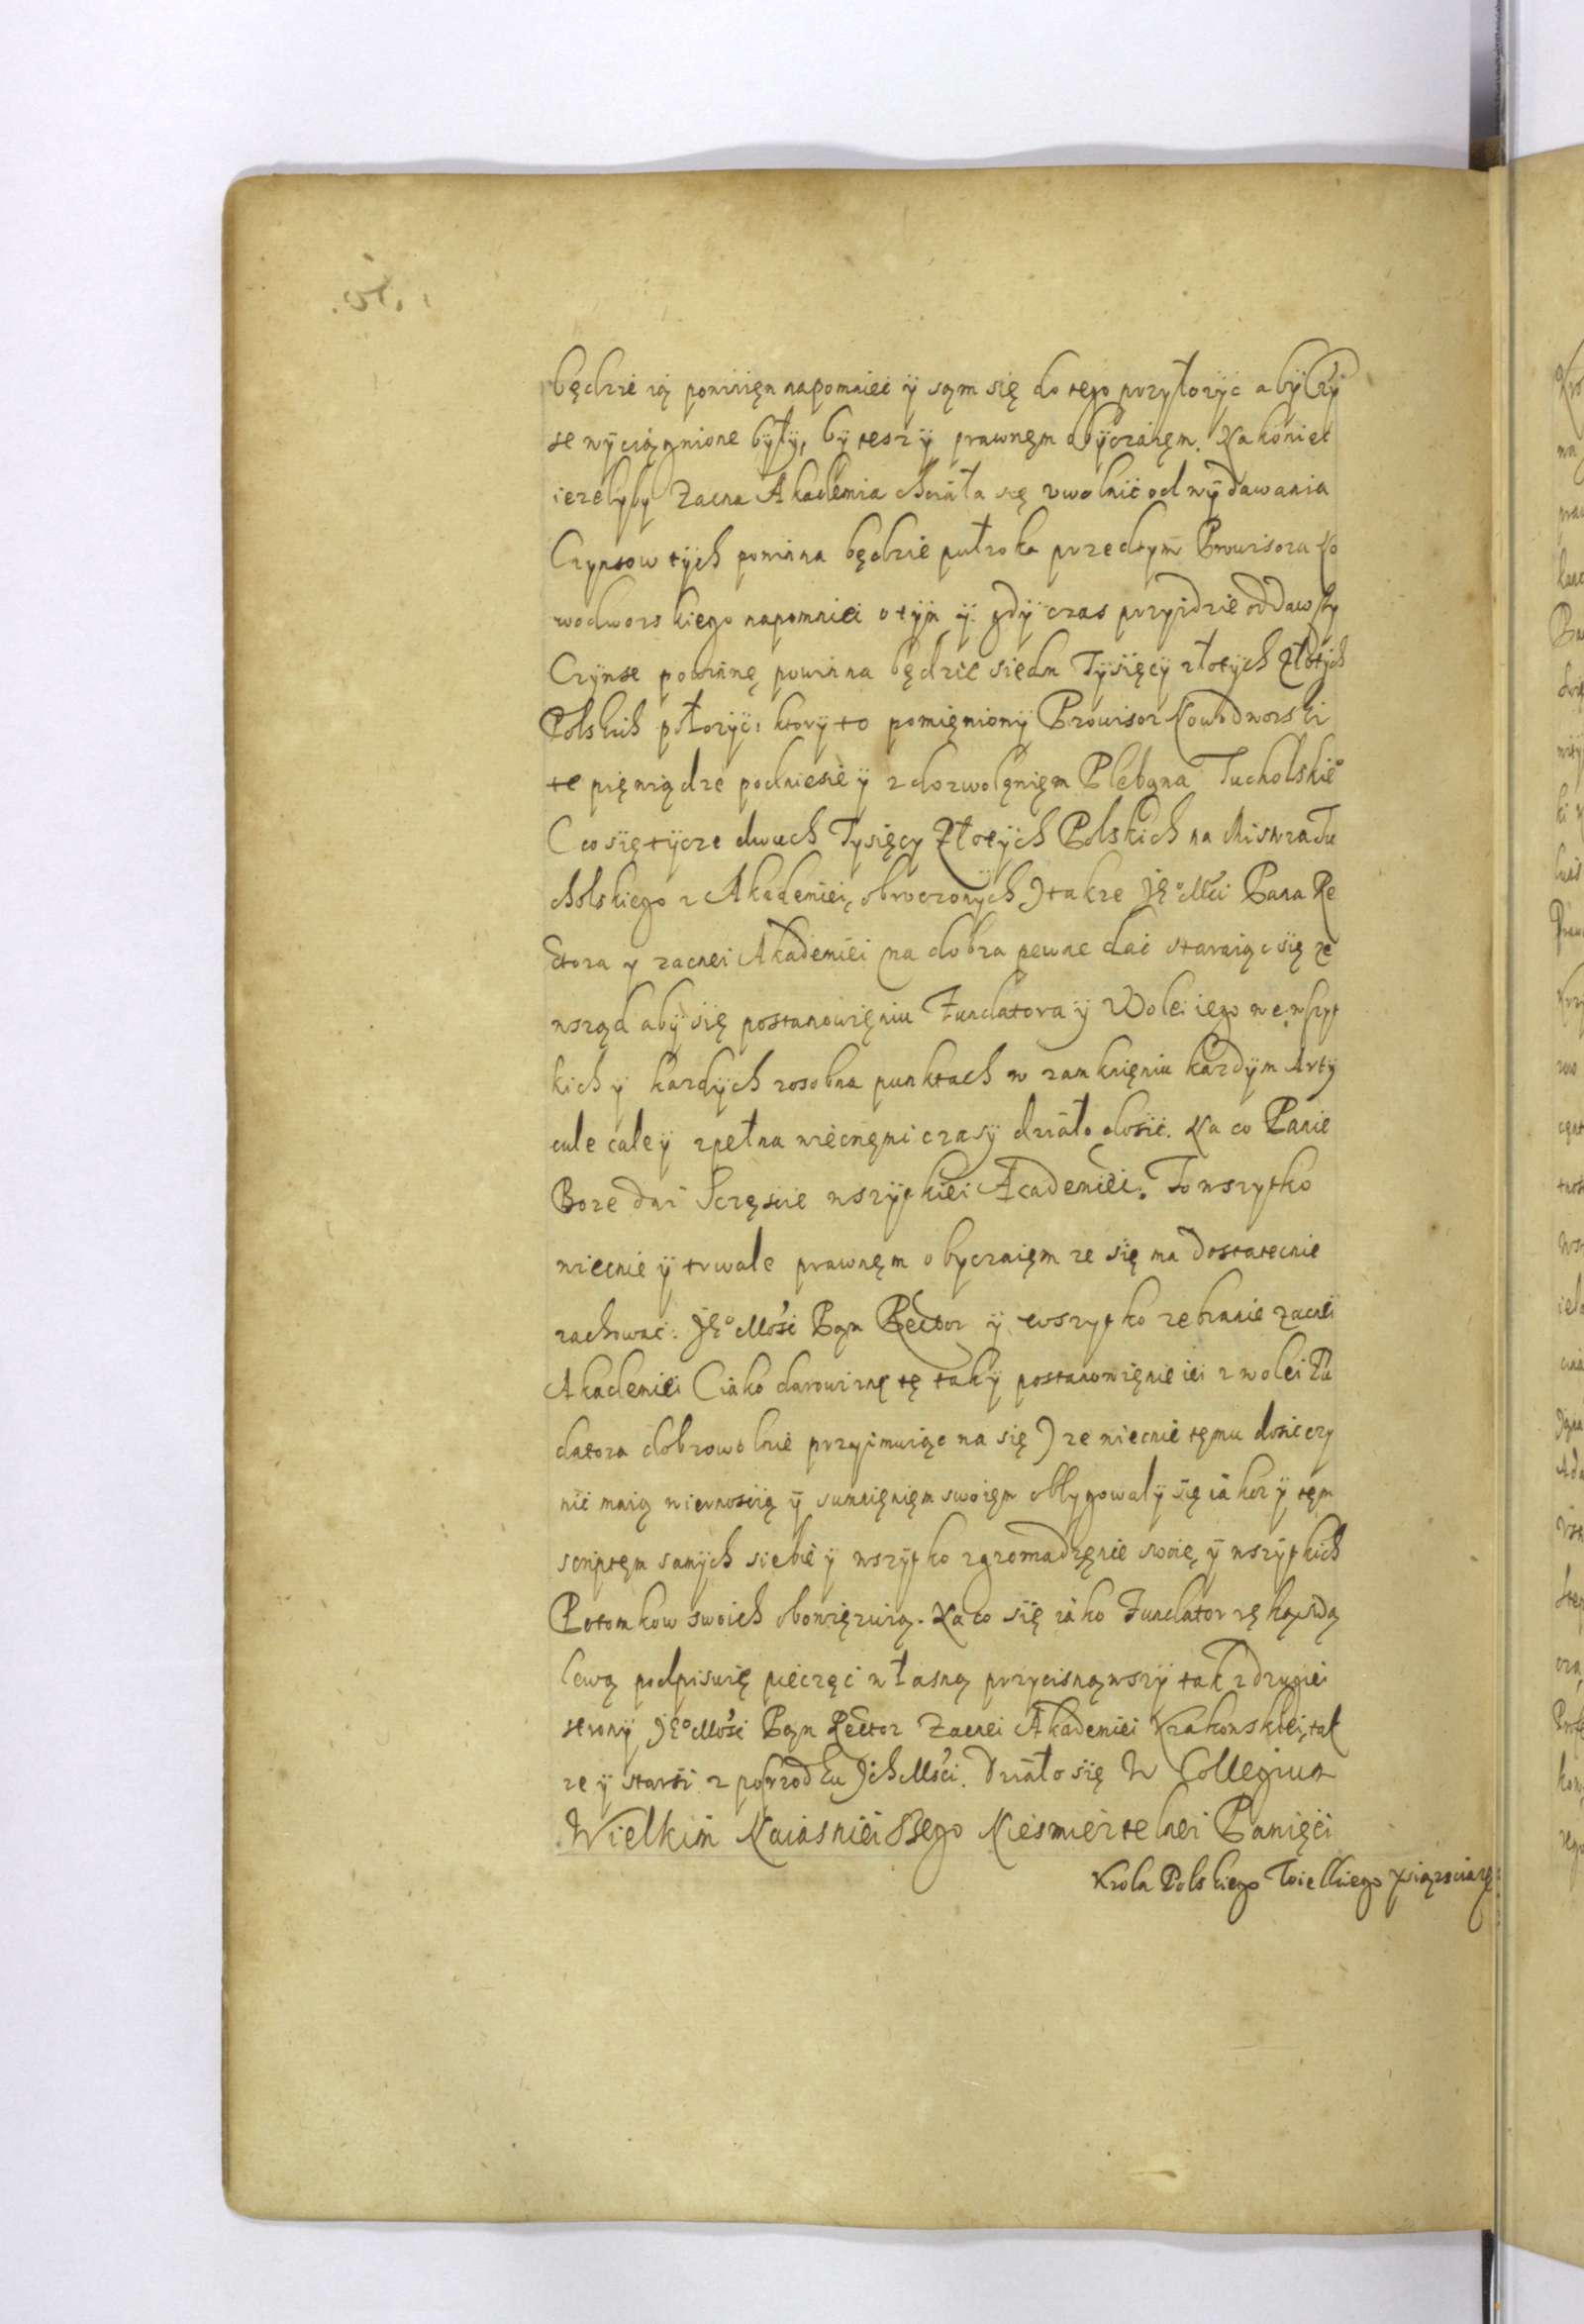 będzie ią poniięn napomniei ÿ sąm się do tego przyłozÿc abÿ Czÿ
se wÿciągnione bÿłÿ, bÿ tesz ÿ prawnęm obÿczaięm. Na koniec
iezelyby Zacna Akademia chciáła się uwolnić od wÿdawania
Czynsow tÿch powinna będzie pułroka przedtym Prowisora No
wodworskiego napomniei o tÿm ÿ gdÿ czas przyidzie oddawszy
Czÿnse powinnę powinna będzie siedm Tÿsięcÿ złotÿch Złotÿch
Polskich płozÿć: ktorÿ to pomięnionÿ Prowisor Nowodworski
te pięniądze podniesie ÿ z dozwolęnięm Plebąna Tucholskie°
(co się tÿcze dwuch Tysięcy Złotÿch Polskich na Mistrza Tu
cholskiego z Akademiei obroczonÿch) takze JE°Mći Pana Re
ctora y zacnei Akademiei na dobra pewne dać staraiąc się ze
wsząd abÿ się postanowięniu Fundatora ÿ Wolei iego we wszyt
kich ÿ kazdÿch zosobna punktach w zamknięniu kazdÿm Arty
cule cale ÿ zpełna wiecnęmi czasÿ działo dosić. Na co Panie
Boze dai Sczęscie wszÿtkiei Academiei. To wszytko
wiecnie ÿ trwale prawnęm obyczaięm ze się ma dostatecnie
zachować: JE°Mość Pąn Rector ÿ wszytko zebranie zacnei
Akademiei (iáko darowiznę tę tak ÿ postanowięnie iei z wolei Fu
datora dobrowolnie przyimuiąc na się) ze wiecnie tęmu dosić czy
nić maią wiernoscią ÿ sumnięnięm swoięm obligowalÿ się iákoz ÿ tęm
scriptęm samÿch siebie ÿ wszÿtko zgromadzęnie swoie ÿ wszÿtkich
Potomkow swoich obowięzuią. Na co się iáko Fundator ręką swą
lewą podpisuię pieczęć własną przycisnąwszÿ tak z drugiei
stronÿ JE°Mość Pąn Rector Zacnei Akademiei Krakowskiei, tak
ze ÿ starśi z pośrzodku Ich Mośći. Działo się W Collegium
Wielkim Naiasnieiszego Niesmiertelnei Pamięći
Krola Polskiego Wielkiego Xiązęcia